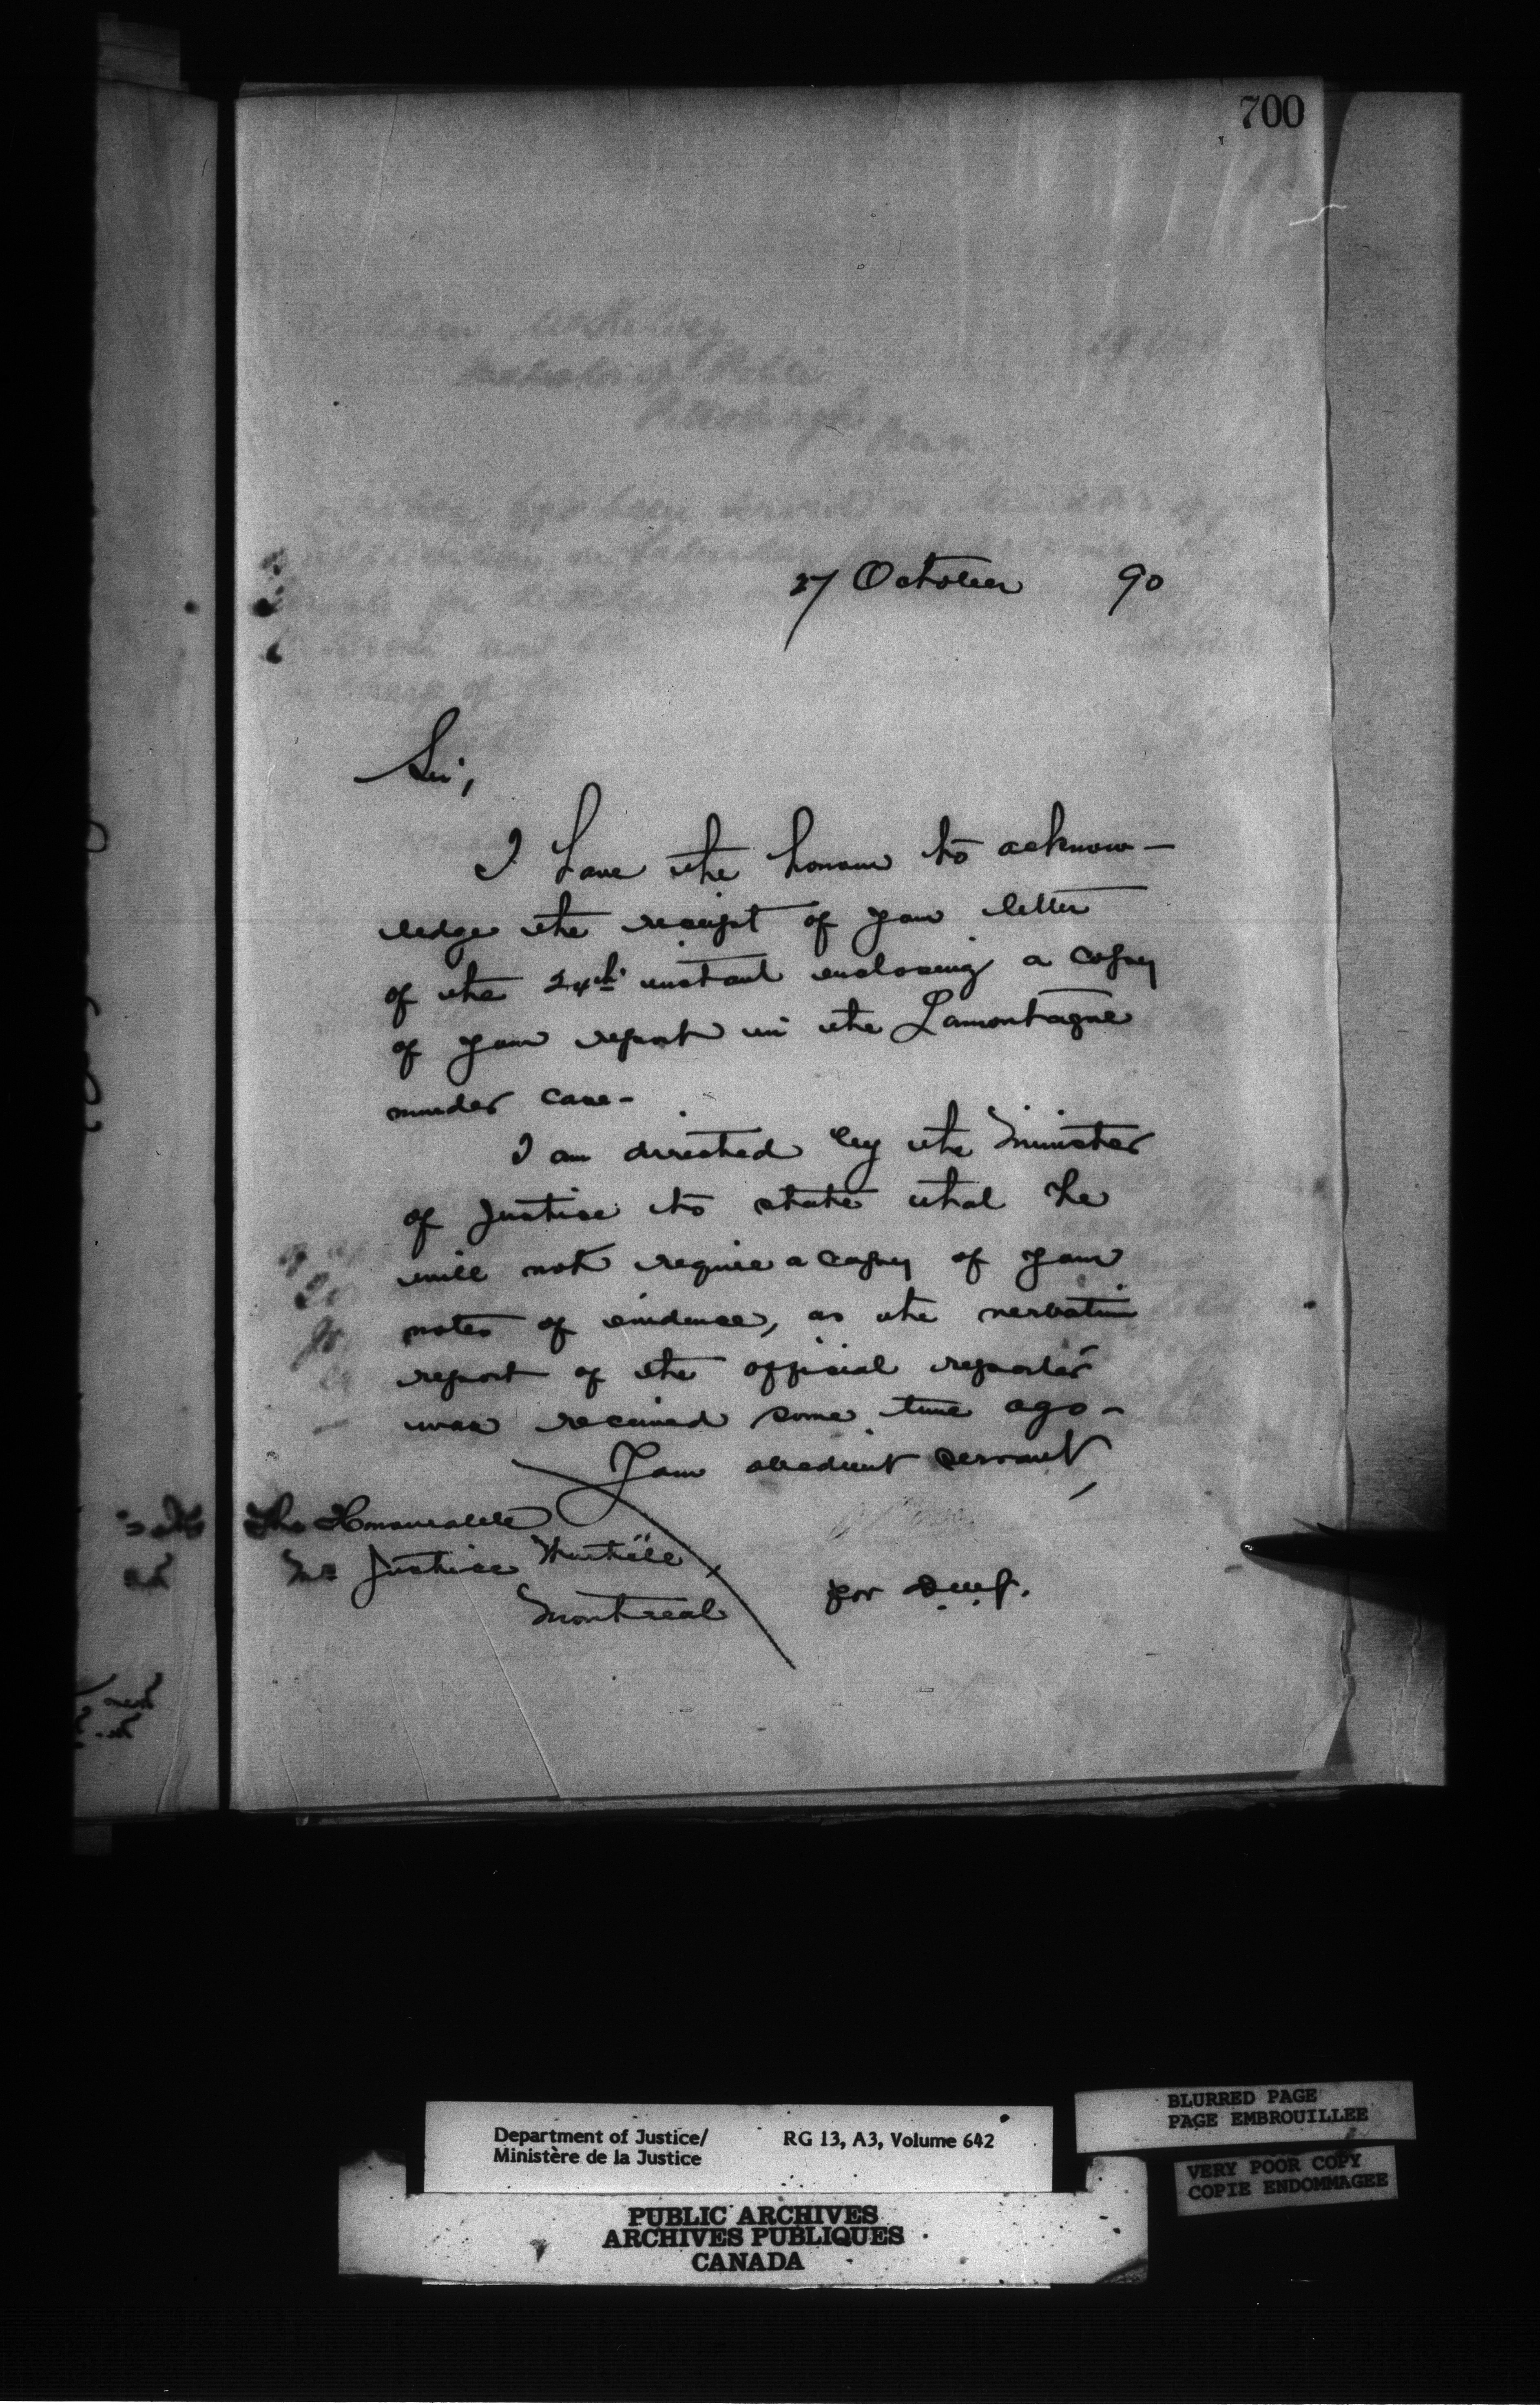 700
27 October 90
Sir,
I have the honour to acknow-
ledge the receipt of your letter
of the 24th instant enclosing a copy
of your report in the Lamontagne
murder case-
I am directed by the Minister
of Justice to state that he
will not require a copy of your
notes of evidence, as the verbatim
report of the official reporter
was received some time ago-
Your obedient servant,
for D.M.J.
The Honourable
Mr Justice Wurtële,
Montreal
Department of Justice/ RG 13, A3, Volume 642
Ministère de la Justice
PUBLIC ARCHIVES
ARCHIVES PUBLIQUES
CANADA
BLURRED PAGE
PAGE EMBROUILLEE
VERY POOR COPY
COPIE ENDOMMAGEE